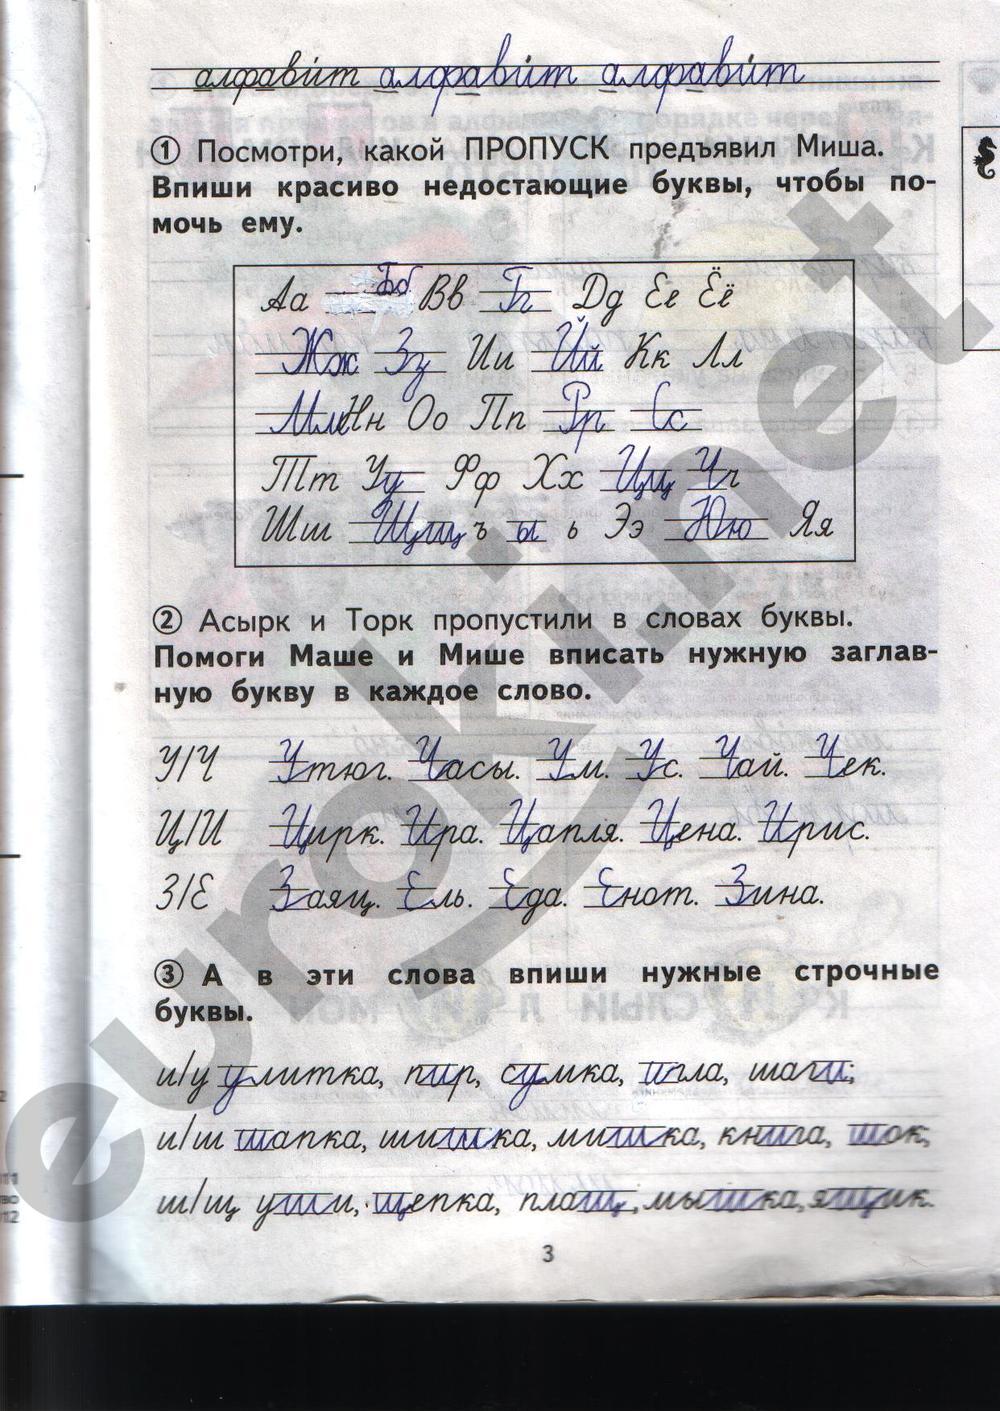 алфавит алфавит алфавит
① Посмотри, какой ПРОПУСК предъявил Миша.
Впиши красиво недостающие буквы, чтобы по-
мочь ему.
Аа Бб Вв Гг Дд Ее Ёё
Жж Зз Ии Йй Кк Лл
Мм Нн Оо Пп Рр Сс
Тт Уу Фф Хх Цц Чч
Шш Щщ ъ ы ь Ээ Юю Яя
② Асырк и Торк пропустили в словах буквы.
Помоги Маше и Мише вписать нужную заглав-
ную букву в каждое слово.
У/Ч Утюг. Часы. Ум. Ус. Чай. Чек.
Ц/И Цирк. Ира. Цапля. Цена. Ирис.
З/Е Заяц. Ель. Еда. Енот. Зина.
③ А в эти слова впиши нужные строчные
буквы.
и/у улитка, пир, сумка, игла, шаги;
и/ш шапка, шишка, мишка, книга, шок;
ш/щ уши, щепка, плащ, мышка, ящик.
3
euroki.net